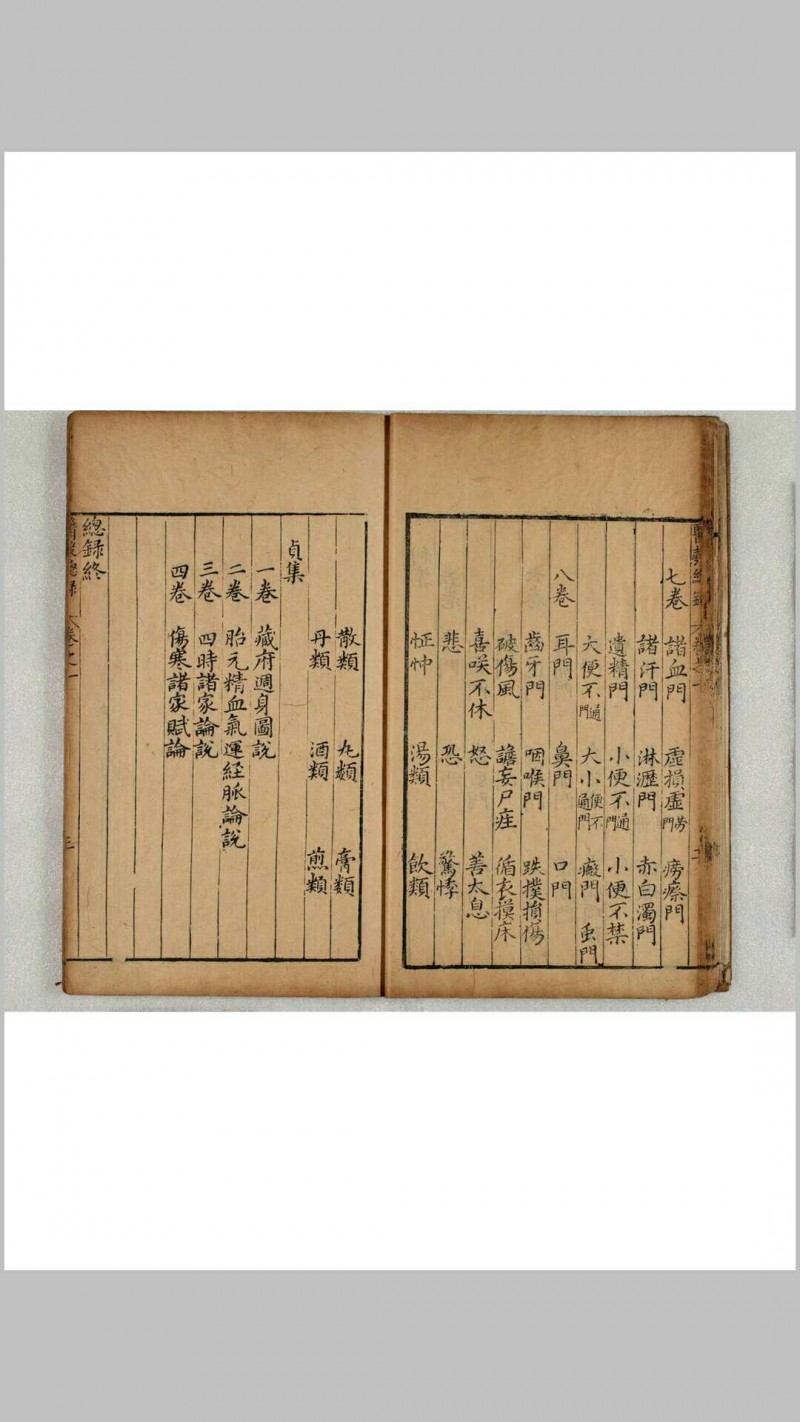 七卷 諸血門 虛損虛勞門 癆瘵門
諸汗門 淋瀝門 赤白濁門
遺精門 小便不通門 小便不禁
大便不通門 大小便不通門 癥門 虫門
八卷 耳門 鼻門 口門
齒牙門 咽喉門 跌撲損傷
破傷風 譫妄尸疰 循衣摸床
喜咲不休 怒 善太息
悲 恐 驚悸
怔忡 湯類 飲類
散類 丸類 膏類
丹類 酒類 煎類
貞集
一卷 藏府週身圖說
二卷 胎元精血氣運経脈論說
三卷 四時諸家論說
四卷 傷寒諸家賦論
總録終